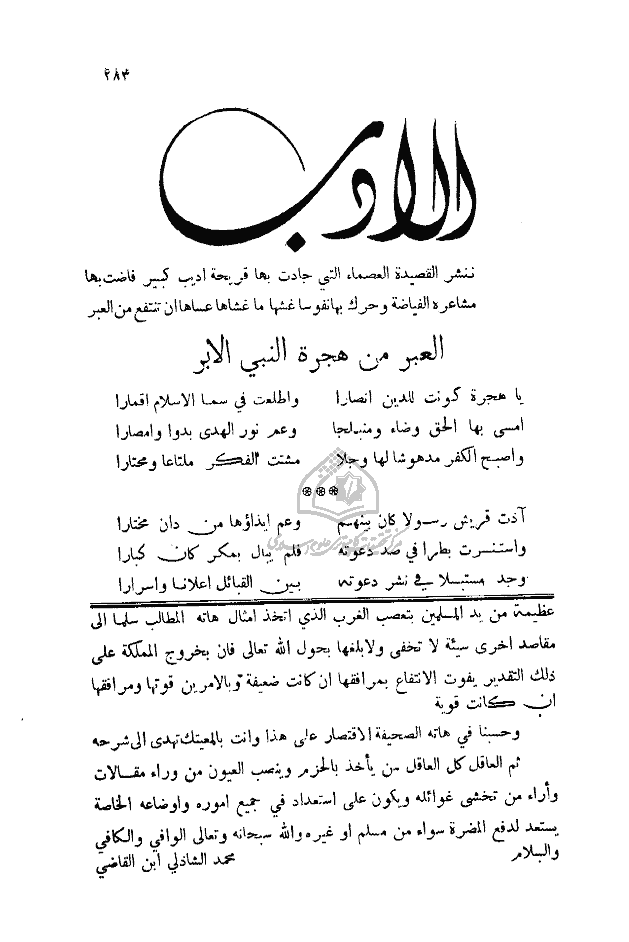 ٢٨٣
الادب
ننشر القصيدة العصماء التي جادت بها قريحة اديب كبير فاضت بها
مشاعره الفياضة وحرك بها نفوسا غشها ما غشاها عساها ان تنتفع من العبر
العبر من هجرة النبي الابر
يا هجرة كونت للدين انصارا واطلعت في سما الاسلام اقمارا
امسى بها الحق وضاء ومنبلجا وعم نور الهدى بدوا وامصارا
واصبح الكفر مدهوشا لها وجلا مشتت الفكر ملتاعا ومحتارا
***
آذت قريش رسولا كان بينهم وعم ايذاؤها من دان مختارا
واستنسرت بطرا في صد دعوته فلم يبال بمكر كان كبارا
وجد مستبسلا في نشر دعوته بين القبائل اعلانا واسرارا
عظيمة من يد المسلمين بتعصب الغرب الذي اتخذ امثال هاته المطالب سلما الى
مقاصد اخرى سيئة لا تخفى ولا بلغها بحول الله تعالى فان بخروج المملكة على
ذلك التقدير يفوت الانتفاع بمرافقها ان كانت ضعيفة وبالامرين قوتها ومرافقها
ان كانت قوية
وحسبنا في هاته الصحيفة الاقتصار على هذا وانت بالمعيتك تهدى الى شرحه
ثم العاقل كل العاقل من يأخذ بالحزم وينصب العيون من وراء مقالات
وأراء من تخشى غوائله ويكون على استعداد في جميع اموره واوضاعه الخاصة
يستعد لدفع المضرة سواء من مسلم او غيره والله سبحانه وتعالى الوافي والكافي
والسلام محمد الشاذلي ابن القاضي